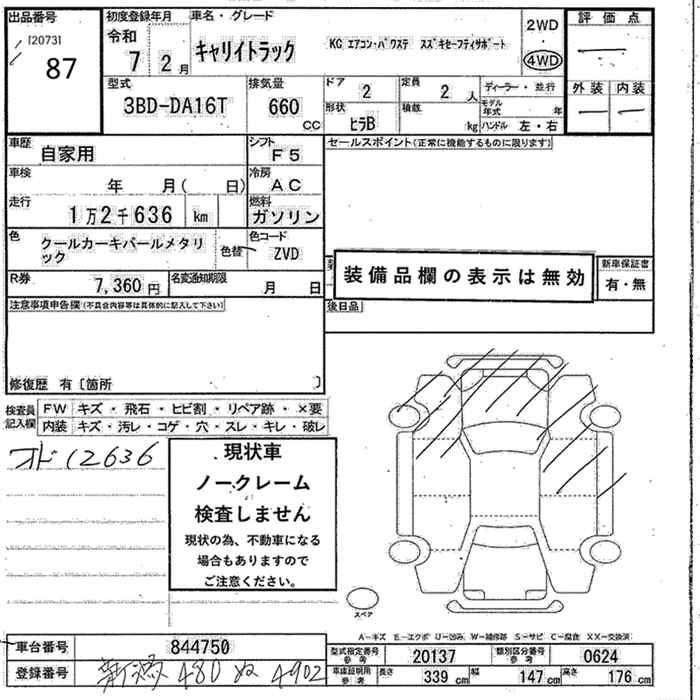 出品番号
[2073]
87
初度登録年月
令和
7 2月
車名・グレード
キャリイトラック
KC エアコン・パワステ スズキセーフティサポート
2WD
4WD
評価点
外装 内装
型式
3BD-DA16T
排気量
660
CC
ドア
2
定員
2 人
形状
ヒラB
積載
kg
ディーラー・並行
モデル年式 年
ハンドル 左・右
車歴
自家用
シフト
F5
車検
年 月( 日)
冷房
AC
走行
1万2千636 km
燃料
ガソリン
色
クールカーキパールメタリ
ック
色替
色コード
ZVD
R券
7,360円
名変通知期限
月 日
セールスポイント(正常に機能するものに限ります)
装備品欄の表示は無効
新車保証書
有・無
後日品
注意事項申告欄(不具合内容等は具体的に記入して下さい)
修復歴 有〔箇所 〕
検査員
記入欄
FW キズ・飛石・ヒビ割・リペア跡・×要
内装 キズ・汚レ・コゲ・穴・スレ・キレ・破レ
オド12636
現状車
ノークレーム
検査しません
現状の為、不動車になる
場合もありますので
ご注意ください。
スペア
A-キズ E-エクボ U-凹み W-補修跡 S-サビ C-腐食 XX-交換済
車台番号
844750
登録番号
新潟 480 ぬ 4902
型式指定番号
参考
20137
類別区分番号
参考
0624
車庫証明用
参考
長さ 339 cm 幅 147 cm 高さ 176 cm